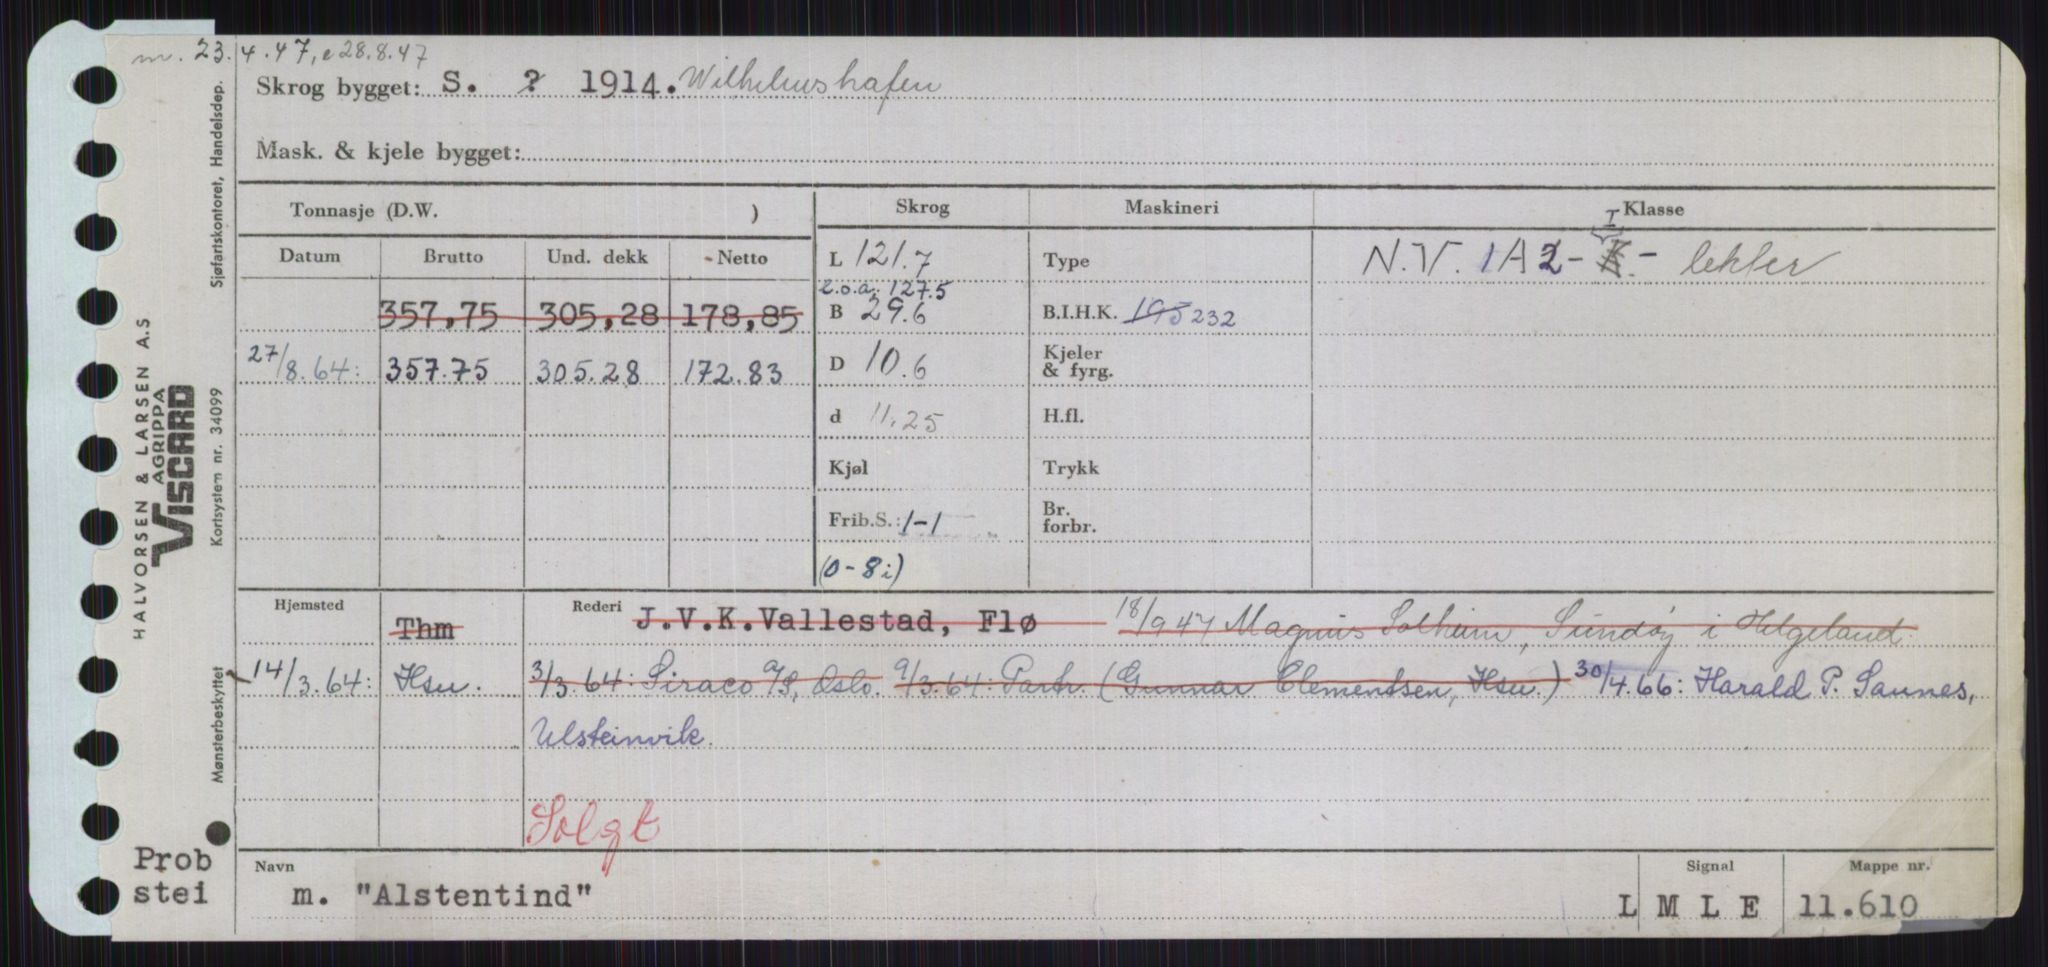 m. 23.4.47, e 28.8.47
Skrog bygget: S. ? 1914. Wilhelmshafen
Mask. & kjele bygget:
Tonnasje (D.W. )
Skrog
Maskineri
Klasse
Datum
Brutto
Und. dekk
Netto
L 121.7
l.o.a. 127.5
Type
N.V. 1A2-K I - lekter
357,75 305,28 178,85
B 29.6
B.I.H.K. 195 232
27/8.64: 357.75 305.28 172.83
D 10.6
Kjeler
& fyrg.
d 11.25
H.fl.
Kjøl
Trykk
Frib.S.: 1-1
(0-8i)
Br.
forbr.
Hjemsted
Rederi
Thm
J.V.K.Vallestad, Flø 18/9 47 Magnus Solheim, Sundøy i Helgeland.
14/3.64: Hsu. 3/3.64: Siraco A/S, Oslo. 9/3.64: Partr. (Gunnar Clementsen, Hsu.) 30/4.66: Harald P. Saunes,
Ulsteinvik.
Solgt
Navn
m. "Alstentind"
Signal
L M L E
Mappe nr.
11.610
Prob
stei
HALVORSEN & LARSEN A.S
AGRIPPA
VISCARD
Sjøfartskontoret, Handelsdep.
Kortsystem nr. 34099
Mønsterbeskyttet